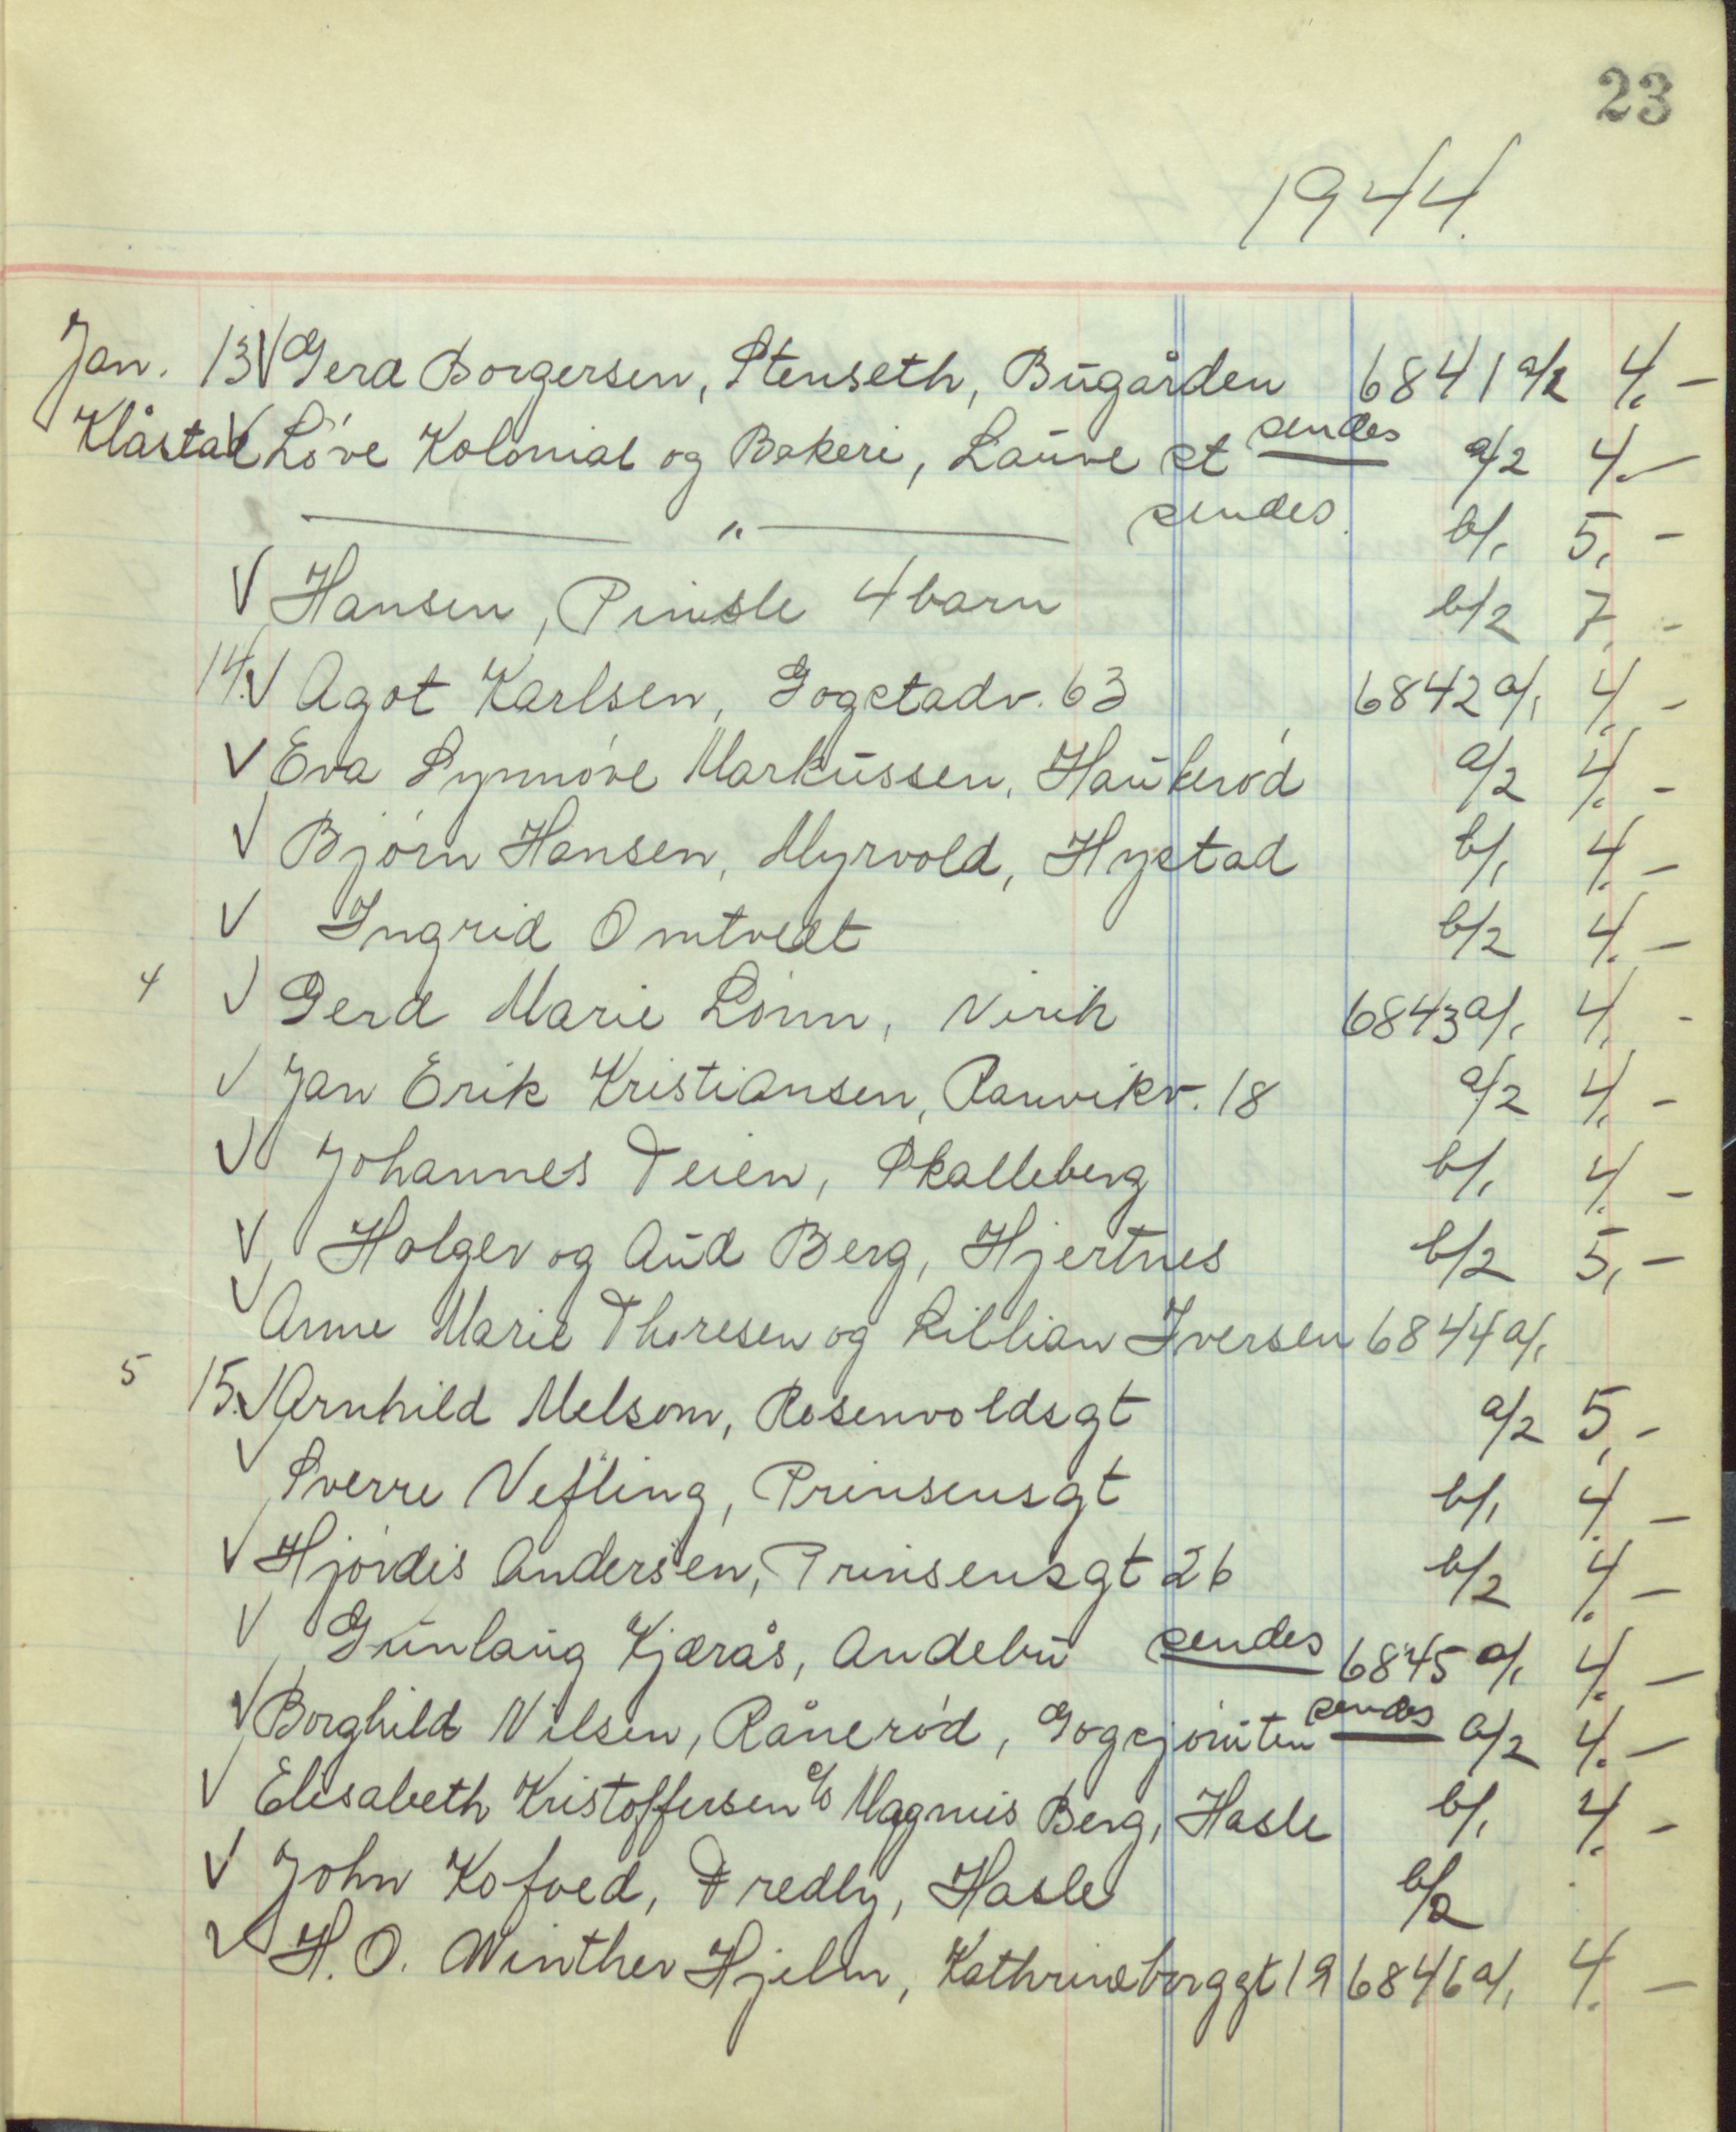 23
1944.
Jan. 13 √ Gerd Borgersen, Stenseth, Bugården 6841 a/2 4.-
Klåstad √ Løve Kolonial og Bakeri, Lauve st sendes a/2 4.-
— " — sendes. b/1 5,-
√ Hansen, Pinsle 4 barn b/2 7,-
14. √ Agot Karlsen, Gogstadv. 63 6842 a/1 4,-
√ Eva Synnøve Markussen, Haukerød a/2 4.-
√ Bjørn Hansen, Myrvold, Hystad b/1 4.-
√ Ingrid Omtvedt b/2 4.-
4 √ Gerd Marie Lønn, Virik 6843 a/1 4.-
√ Jan Erik Kristiansen, Ranvikv. 18 a/2 4.-
√ Johannes Teien, Skalleberg b/1 4.-
√ Holger og Aud Berg, Hjertnes b/2 5,-
√ Anne Marie Thoresen og Lillian Iversen 6844 a/1
5 15. √ Arnhild Melsom, Rosenvoldsgt a/2 5,-
√ Sverre Vefling, Prinsensgt b/1 4.-
√ Hjørdis Andersen, Prinsensgt 26 b/2 4.-
√ Gunlaug Kjærås, Andebu sendes 6845 a/1 4.-
√ Borghild Nilsen, Rånerød, Gogsjøruten sendes a/2 4.-
√ Elisabeth Kristoffersen c/o Magnus Berg, Hasle b/1 4.-
√ John Kofoed, Fredly, Hasle b/2
√ H. O. Winther Hjelm, Kathrineborggt 19 6846 a/1 4.-